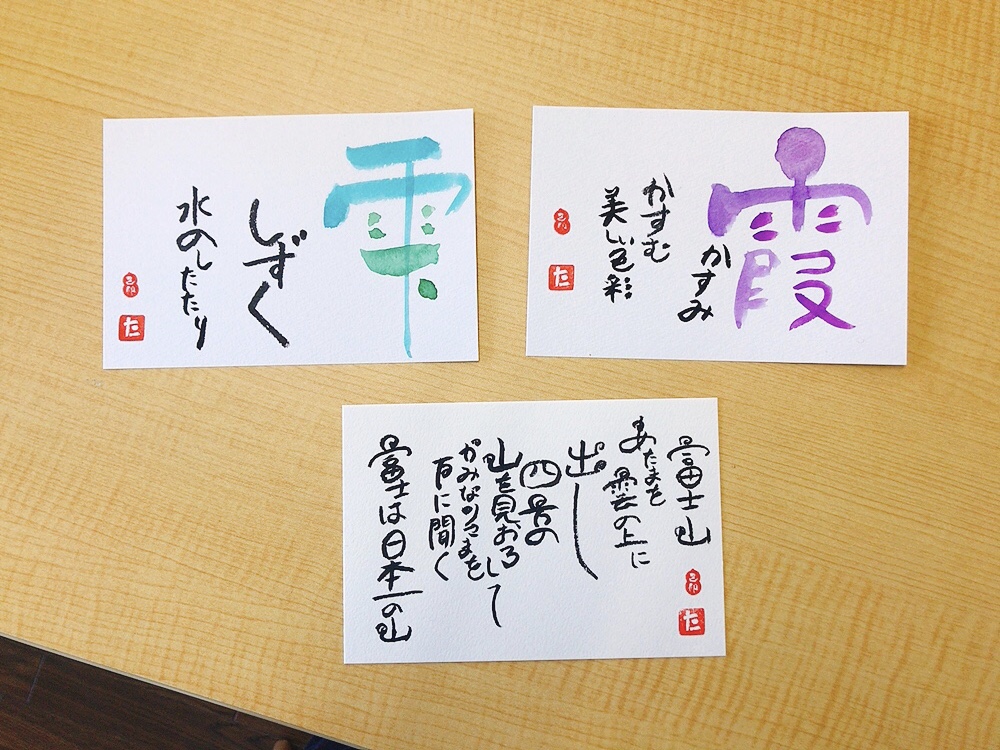 雫
しずく
水のしたたり
た
霞
かすみ
かすむ
美しい色彩
た
富士山
あたまを
雲の上に
出し
四方の
山を見おろして
かみなりさまを
下に聞く
富士は日本一の山
た